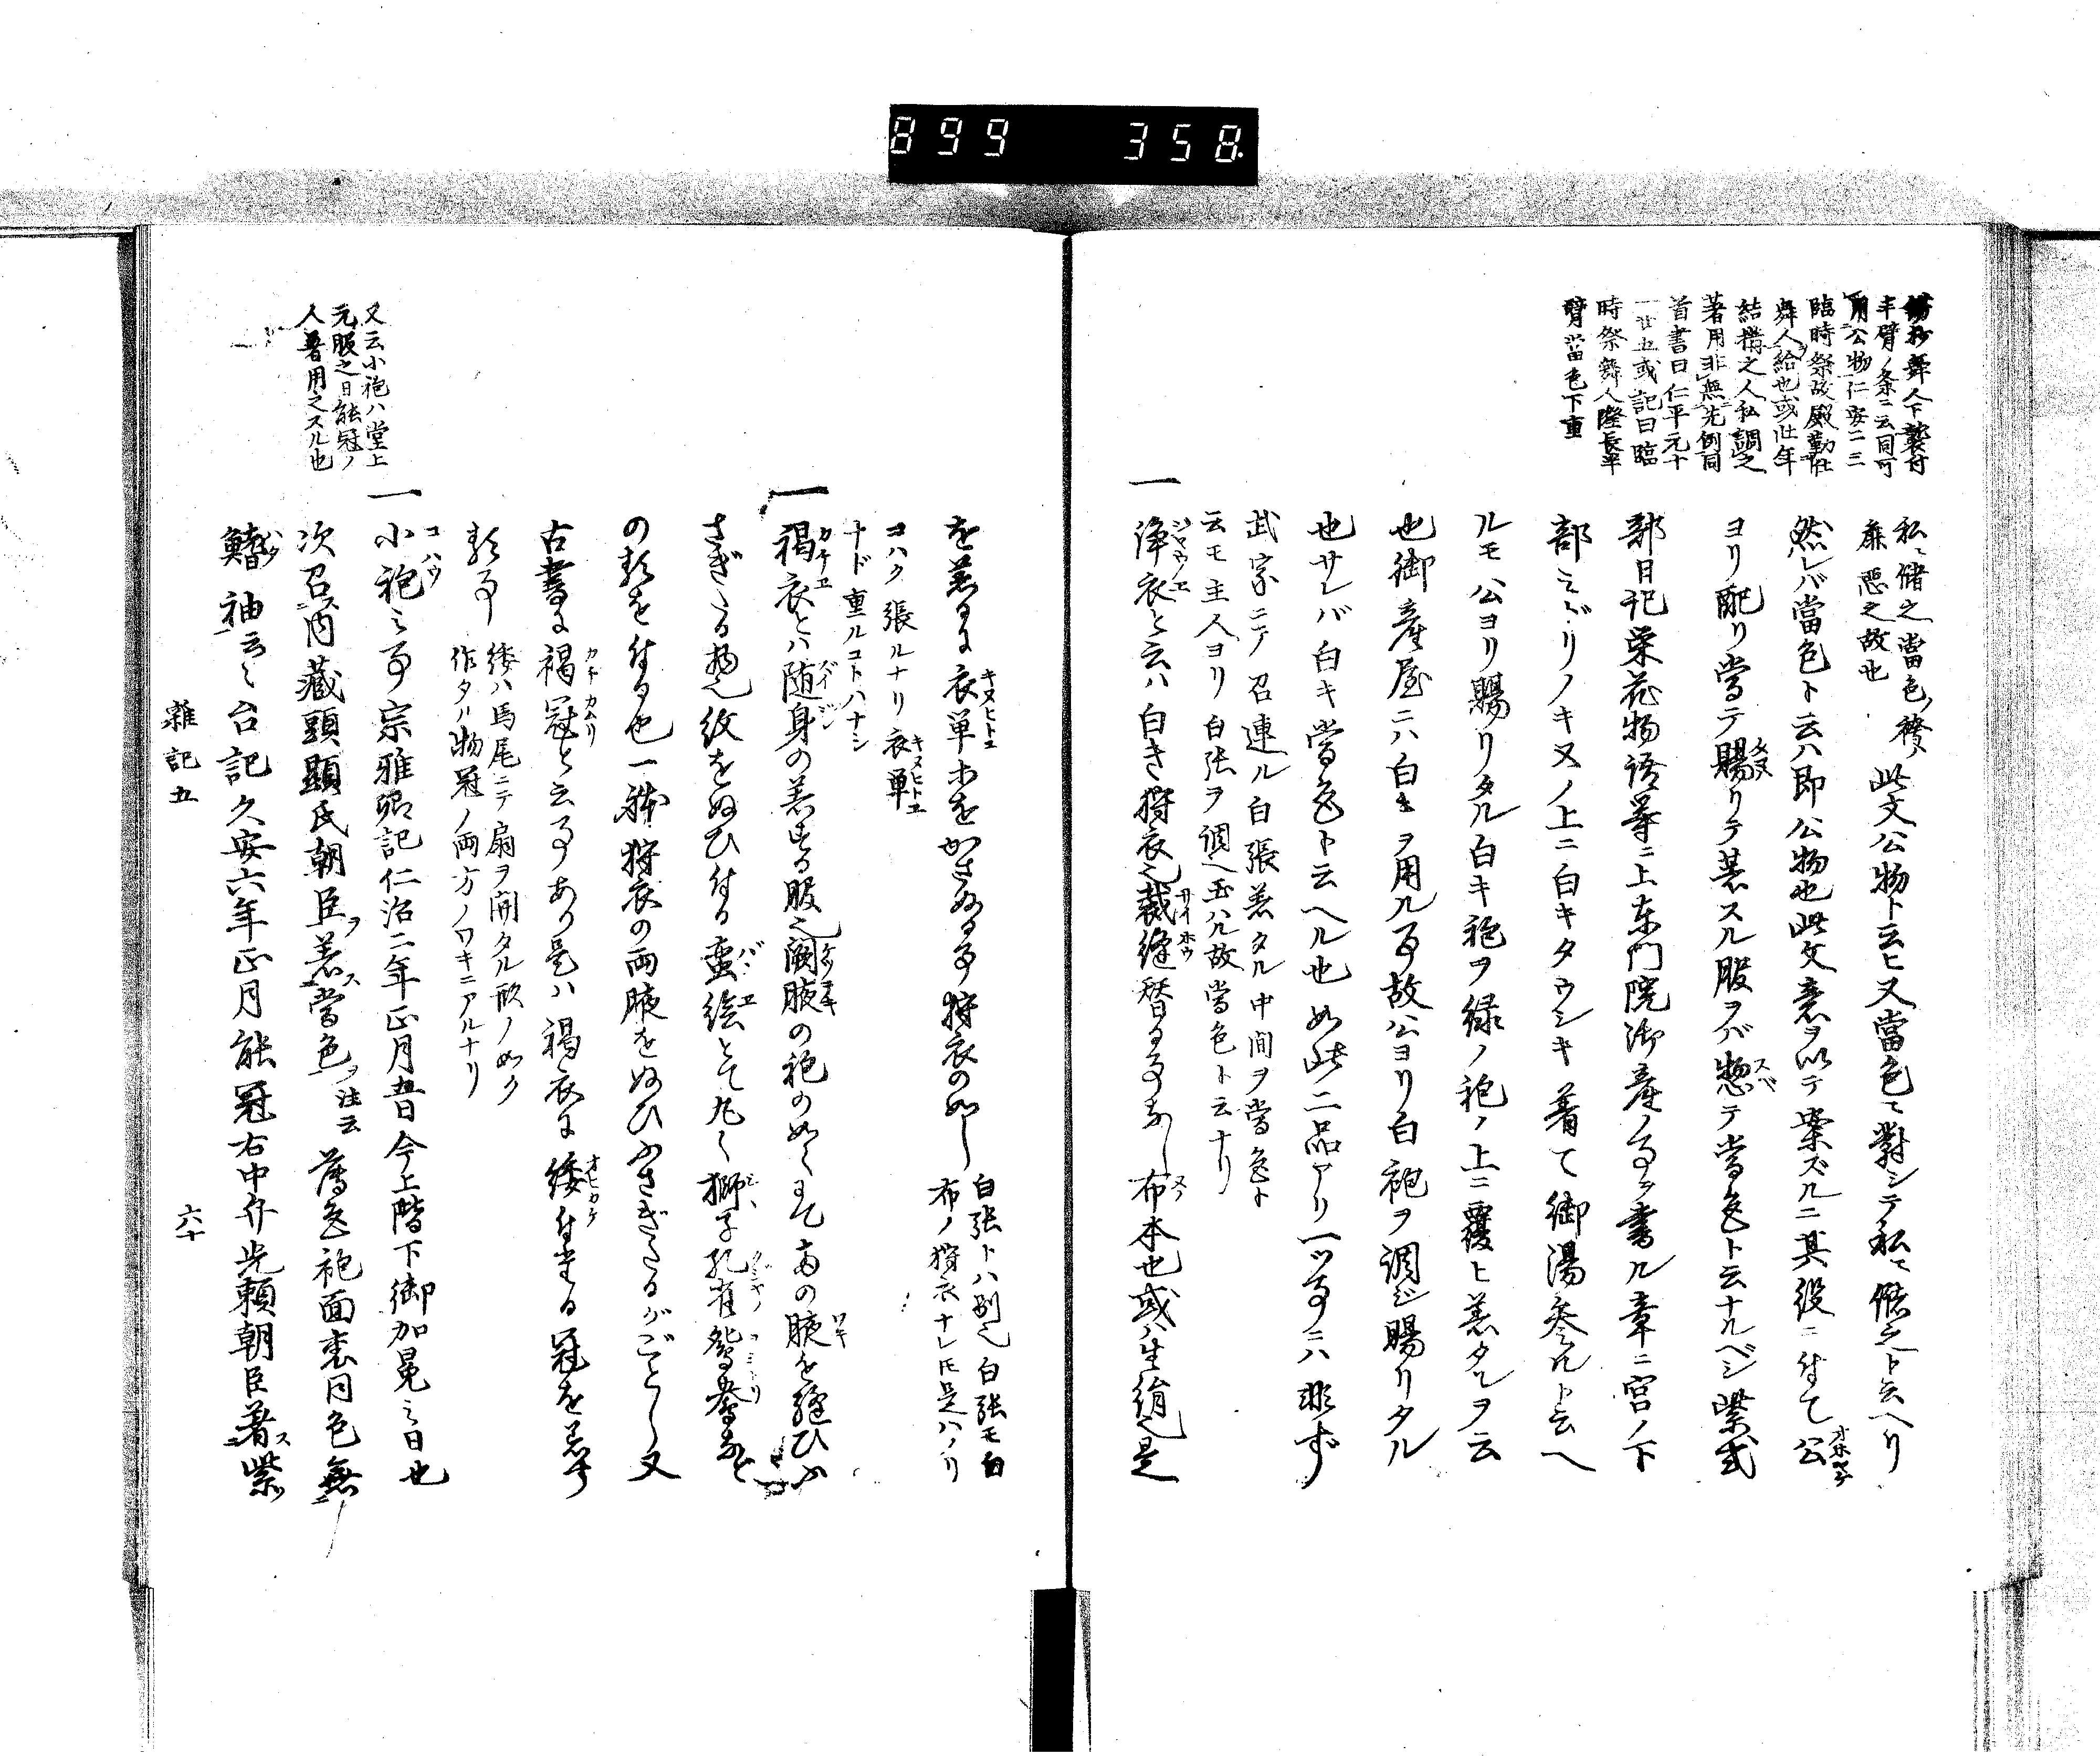 899 358
餝抄舞人下襲付
半臂ノ条ニ云同可
用公物仁安二三
臨時祭故殿勤仕
舞人給也或仕年
結構之人私調之
著用非無先例同
首書曰仁平元十
一廿五或記曰臨
時祭舞人隆長半
臂當色下重
私ニ儲之當色ノ襖ハ
麁悪之故也
此文公物ト云ヒ又當色ニ對シテ私ニ儲之ト云ヘリ
然レバ當色ト云ハ即公物也此文意ヲ以テ案ズルニ其役ニ付て公
ヨリ配リ當テ賜リテ著スル服ヲバ惣テ當色ト云ナルベシ紫式
部日記栄花物語等ニ上東門院御産ノ事ヲ書ル章ニ宮ノ下
部ミドリノキヌノ上ニ白キタウシキ着て御湯参ルト云ヘ
ルモ公ヨリ賜リタル白キ袍ヲ緑ノ袍ノ上ニ覆ヒ著タルヲ云
也御産屋ニハ白キヲ用ル事故公ヨリ白袍ヲ調ジ賜リタル
也サレバ白キ當色ト云ヘル也如此二品アリ一ツ事ニハ非ず
武家ニテ召連ル白張著タル中間ヲ當色ト
云モ主人ヨリ白張ヲ調ヘ玉ハル故當色ト云ナリ
一 浄衣と云ハ白き狩衣也裁縫替る事なし布本也或ハ生絹也是
を著るに衣単ホをかさぬる事狩衣の如し
白張トハ別也白張モ白
布ノ狩衣ナレ𪜈是ハノリ
コハク張ルナリ衣単
ナド重ルコトハナシ
一 褐衣とハ随身の著する服也闕腋の袍の如くにて両の腋を縫ひふ
さぎたる物也紋をぬひ付る蛮絵とて丸く獅子孔雀鴛鴦など
の形を付る也一躰狩衣の両腋をぬひふさぎたるがごとし又
古書に褐冠と云事あり是ハ褐衣に緌付たる冠を著す
る事
緌ハ馬尾ニテ扇ヲ開タル形ノ如ク
作タル物冠ノ両方ノワキニアルナリ
又云小袍ハ堂上
元服之日能冠ノ
人著用之スル也
一 小袍之事宗雅卿記仁治二年正月五日今上階下御加冕之日也
次召内蔵頭顕氏朝臣著當色注云薄色袍面裏同色無
鰭袖云々台記久安六年正月能冠右中弁光頼朝臣著紫
雜記五
六十